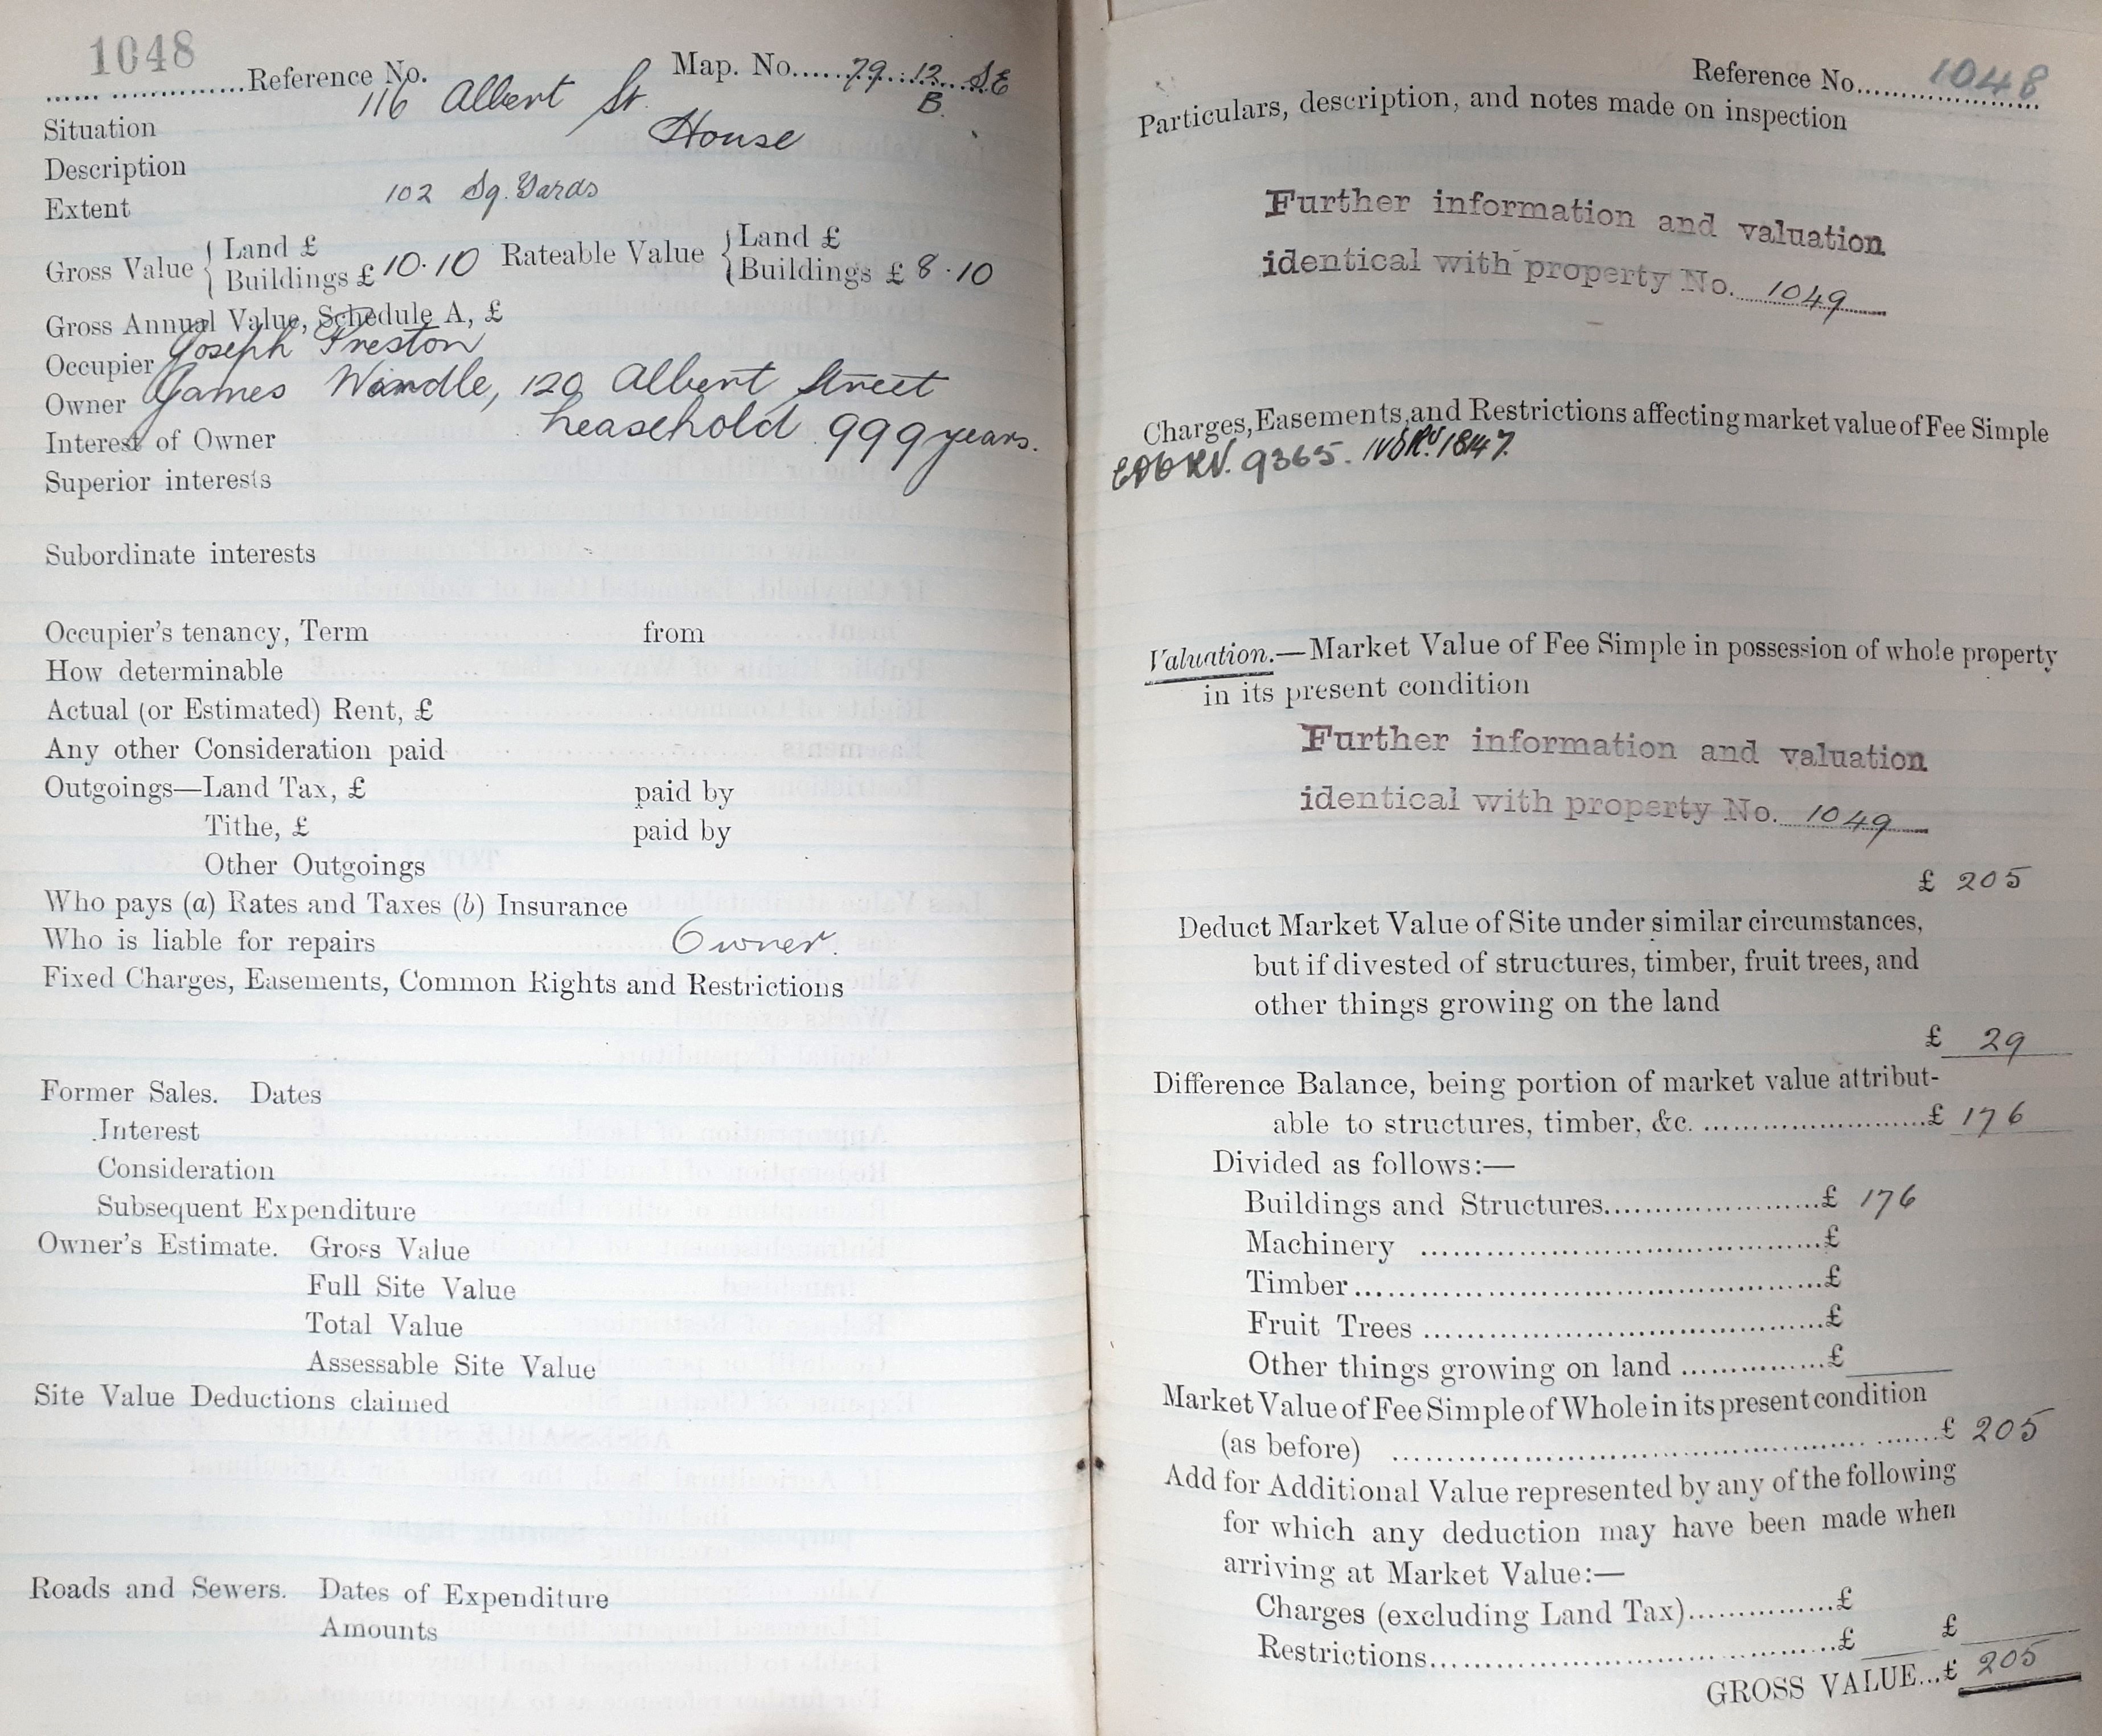 1048
Reference No. Map. No. 79.12 SE
B.
Situation 116 Albert St.
Description House
Extent 102 Sq. Yards
Gross Value { Land £
Buildings £ 10.10 Rateable Value { Land £
Buildings £ 8.10
Gross Annual Value, Schedule A, £
Occupier Joseph Preston
Owner James Windle, 120 Albert Street
Interest of Owner Leasehold 999 years.
Superior interests
Subordinate interests
Occupier's tenancy, Term from
How determinable
Actual (or Estimated) Rent, £
Any other Consideration paid
Outgoings—Land Tax, £ paid by
Tithe, £ paid by
Other Outgoings
Who pays (a) Rates and Taxes (b) Insurance
Who is liable for repairs Owner.
Fixed Charges, Easements, Common Rights and Restrictions
Former Sales. Dates
Interest
Consideration
Subsequent Expenditure
Owner's Estimate. Gross Value
Full Site Value
Total Value
Assessable Site Value
Site Value Deductions claimed
Roads and Sewers. Dates of Expenditure
Amounts
Reference No. 1048
Particulars, description, and notes made on inspection
Further information and valuation
identical with property No. 1049
Charges, Easements, and Restrictions affecting market value of Fee Simple
9365.
Valuation.—Market Value of Fee Simple in possession of whole property
in its present condition
Further information and valuation
identical with property No. 1049
£ 205
Deduct Market Value of Site under similar circumstances,
but if divested of structures, timber, fruit trees, and
other things growing on the land
£ 29
Difference Balance, being portion of market value attribut-
able to structures, timber, &c. £ 176
Divided as follows:—
Buildings and Structures £ 176
Machinery £
Timber £
Fruit Trees £
Other things growing on land £
Market Value of Fee Simple of Whole in its present condition
(as before) £ 205
Add for Additional Value represented by any of the following
for which any deduction may have been made when
arriving at Market Value:—
Charges (excluding Land Tax) £
Restrictions £ £
GROSS VALUE...£ 205